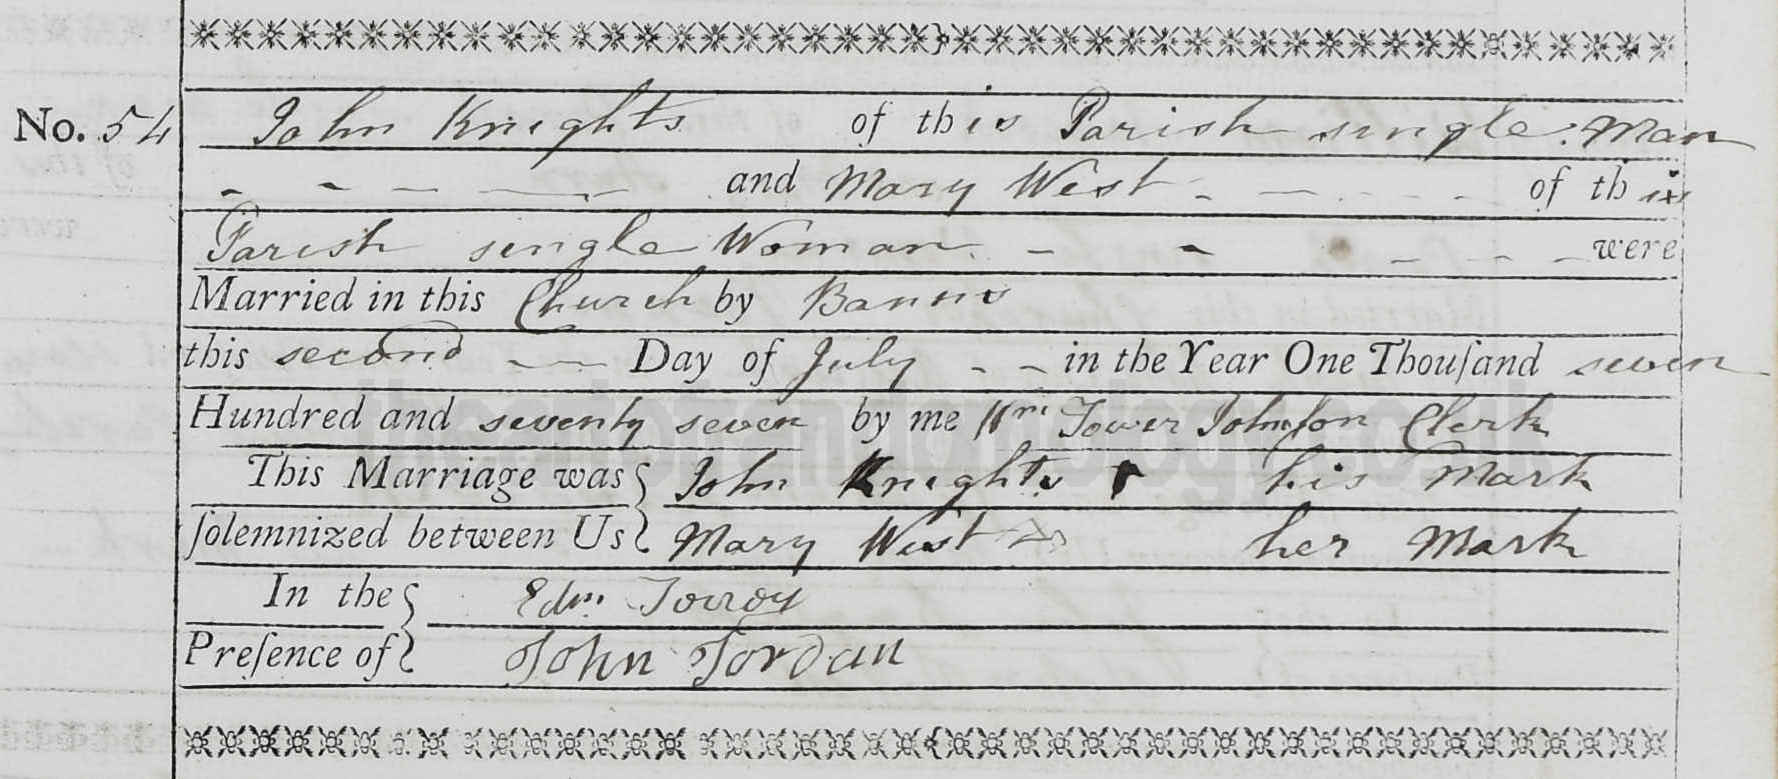 No. 54 John Knights of this Parish single Man
and Mary West of this
Parish single Woman were
Married in this Church by Banns
this second Day of July in the Year One Thouſand seven
Hundred and seventy seven by me Wm Tower Johnſon Clerk
This Marriage was John Knights his Mark
ſolemnized between Us Mary West her Mark
In the Edm. Torroy
Preſence of John Jordan